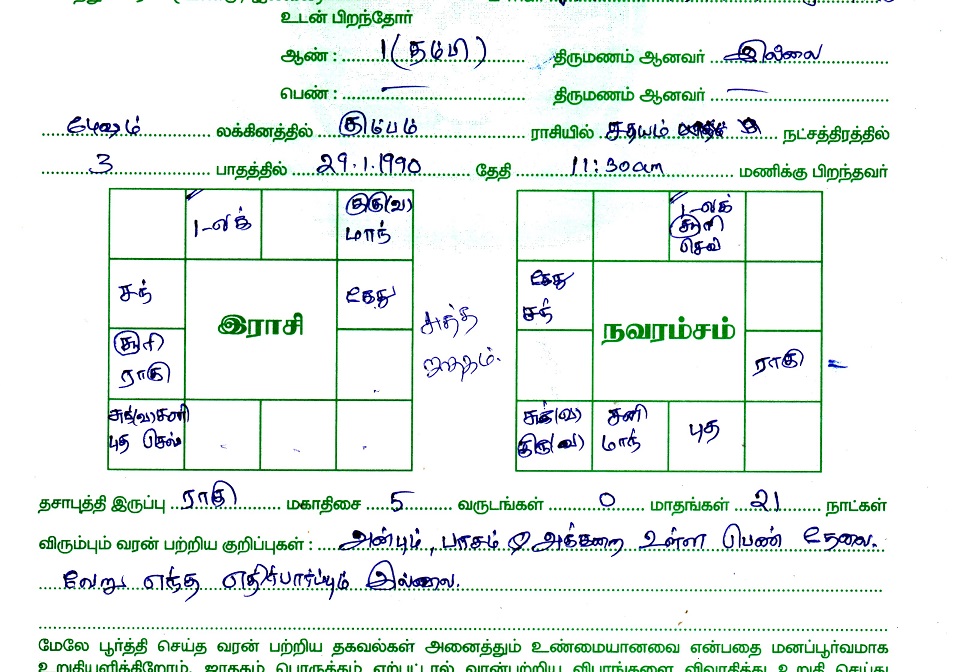 உடன் பிறந்தோர்
ஆண் : 1 (தம்பி) திருமணம் ஆனவர் இல்லை
பெண் : — திருமணம் ஆனவர் —
மேஷம் லக்கினத்தில் கும்பம் ராசியில் சதயம் நட்சத்திரத்தில்
3 பாதத்தில் 29.1.1990 தேதி 11:30am மணிக்கு பிறந்தவர்
1-லக்
குரு(வ)
மாந்
சந்
கேது
இராசி
சூரி
ராகு
சுக்(வ) சனி
புத செவ்
சுத்த
ஜாதகம்.
1-லக்
சூரி
செவ்
கேது
சந்
நவரம்சம்
ராகு
சுக்(வ)
குரு(வ)
சனி
மாந்
புத
தசாபுத்தி இருப்பு ராகு மகாதிசை 5 வருடங்கள் 0 மாதங்கள் 21 நாட்கள்
விரும்பும் வரன் பற்றிய குறிப்புகள் : அன்பும், பாசம் & அக்கறை உள்ள பெண் தேவை.
வேறு எந்த எதிர்பார்ப்பும் இல்லை.
மேலே பூர்த்தி செய்த வரன் பற்றிய தகவல்கள் அனைத்தும் உண்மையானவை என்பதை மனப்பூர்வமாக
உறுதியளிக்கிறோம். ஜாதகம் பொருத்தம் ஏற்பட்டால் வரன்பற்றிய விபரங்களை விவாதித்து உறுதி செய்து